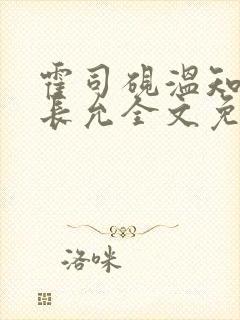 霍司砚温知
长允全文免
洛咪